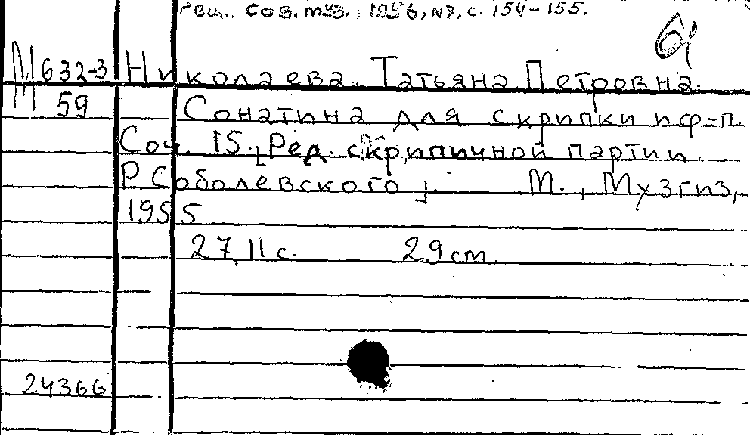 Рец. Сов. муз., 1956, №7, с. 154-155.
М 632-3 Николаева Татьяна Петровна.
59 Сонатина для скрипки и ф-п.
Соч. 15. [Ред. скрипичной партии
Р Соболевского] М., Музгиз,
1955
27, 11 с. 29 cm.
24366